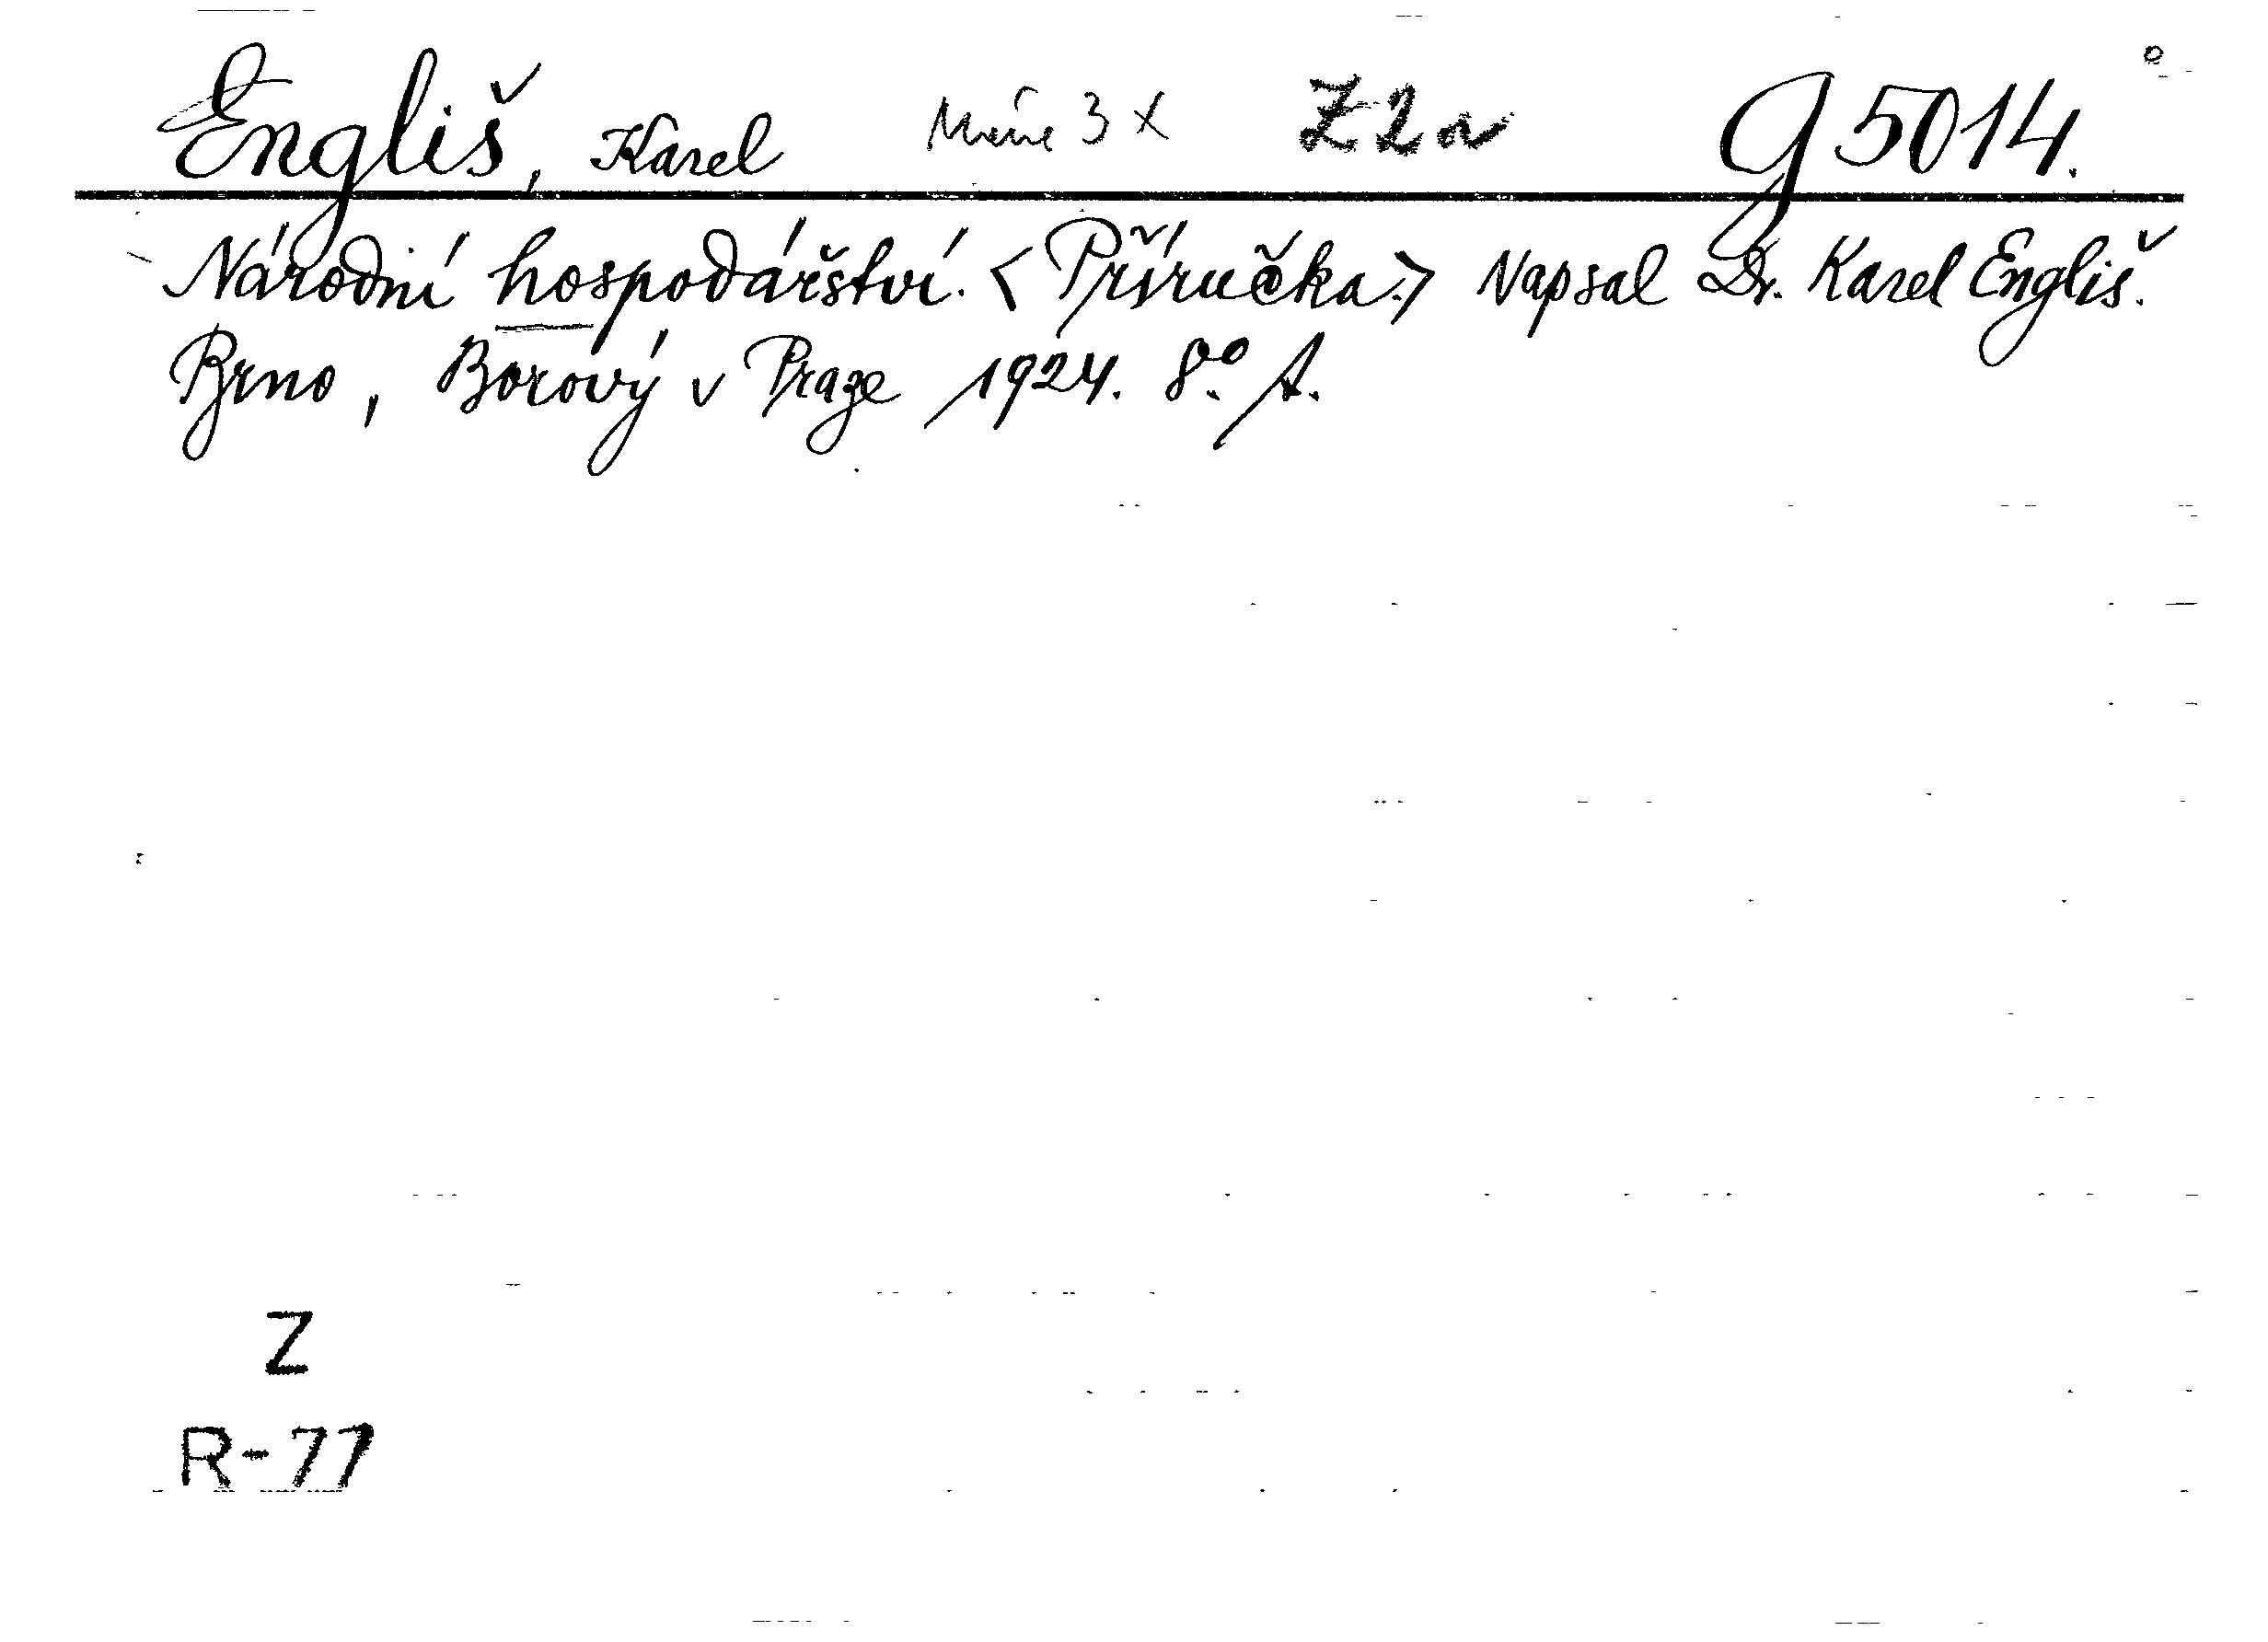 Engliš, Karel Máme 3 x Z 2 a G 5014.
Národní hospodářství. <Příručka.> Napsal Dr. Karel Engliš.
Brno, Borový v Praze 1924. 8°. A.
Z
R-77